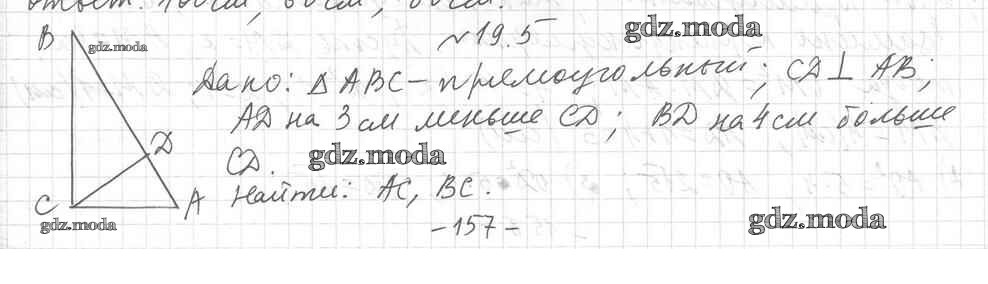 ответ: 100 см, 60 см, 80 см.
№19.5
gdz.moda
B
gdz.moda
Дано: △ ABC – прямоугольный; CD ⊥ AB;
AD на 3 см меньше CD; BD на 4 см больше
CD.
gdz.moda
D
C
A
Найти: AC, BC.
gdz.moda
- 157 -
gdz.moda